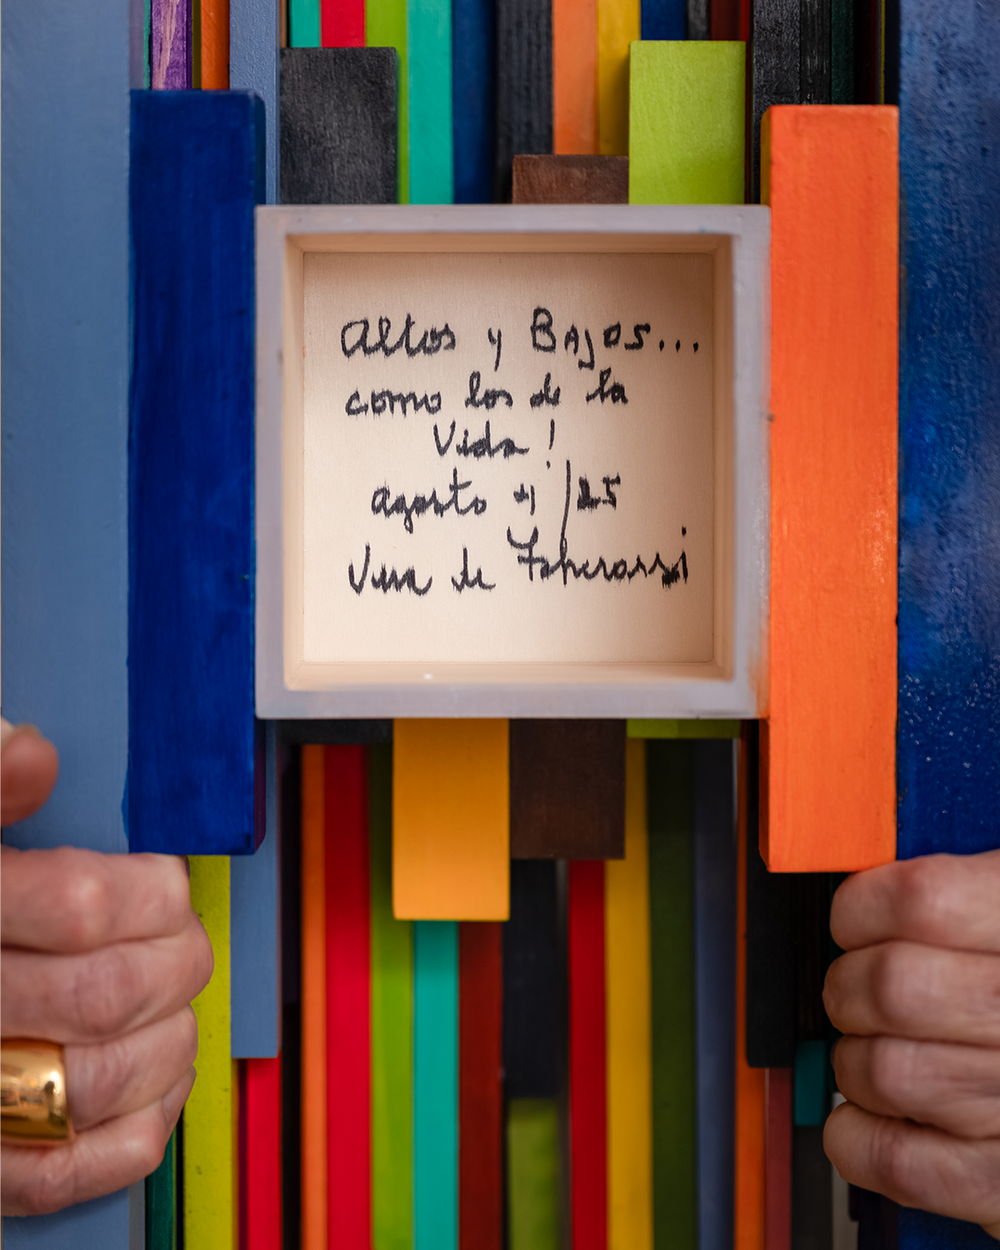 Altos y Bajos...
como los de la
Vida!
agosto 4/25
de